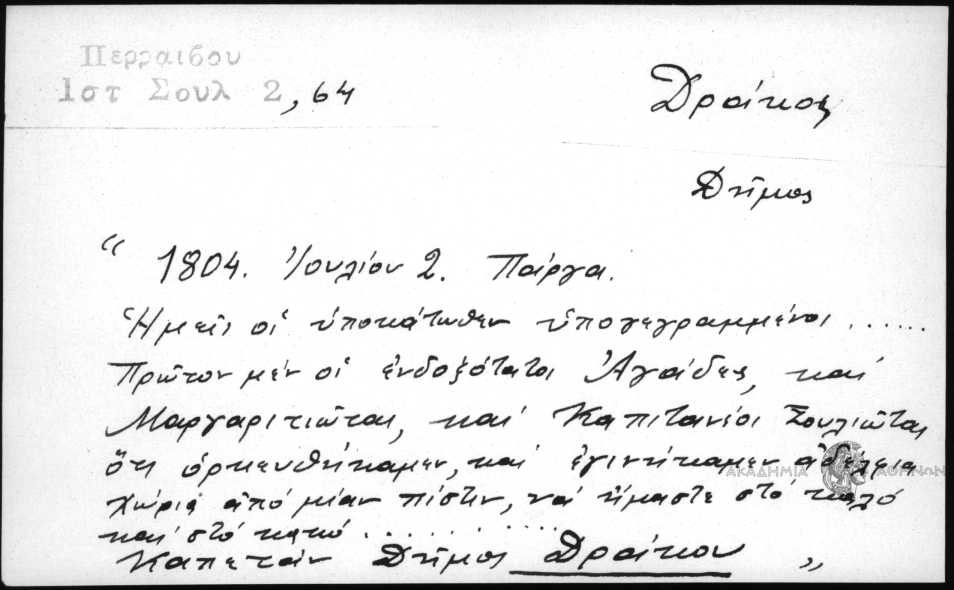 Περραιβου
Ιστ Σουλ 2, 64
Δράκος
Δῆμος
“ 1804. Ἰουλίου 2. Πάργα.
Ἡμεῖς οἱ ὑποκάτωθεν ὑπογεγραμμένοι ......
Πρῶτον μέν οἱ ἐνδοξότατοι Ἀγάδες, καί
Μαργαριτιῶται, καί Καπιτανέοι Σουλιῶται
ὅτι ὁρκευθήκαμεν, καί ἐγινήκαμεν ἀδέλφια
χώρια ἀπό μίαν πίστιν, νά ἤμαστε στό καλό
καί στό κακό ..........
Καπετάν Δῆμος Δράκου „
ΑΚΑΔΗΜΙΑ ΑΘΗΝΩΝ